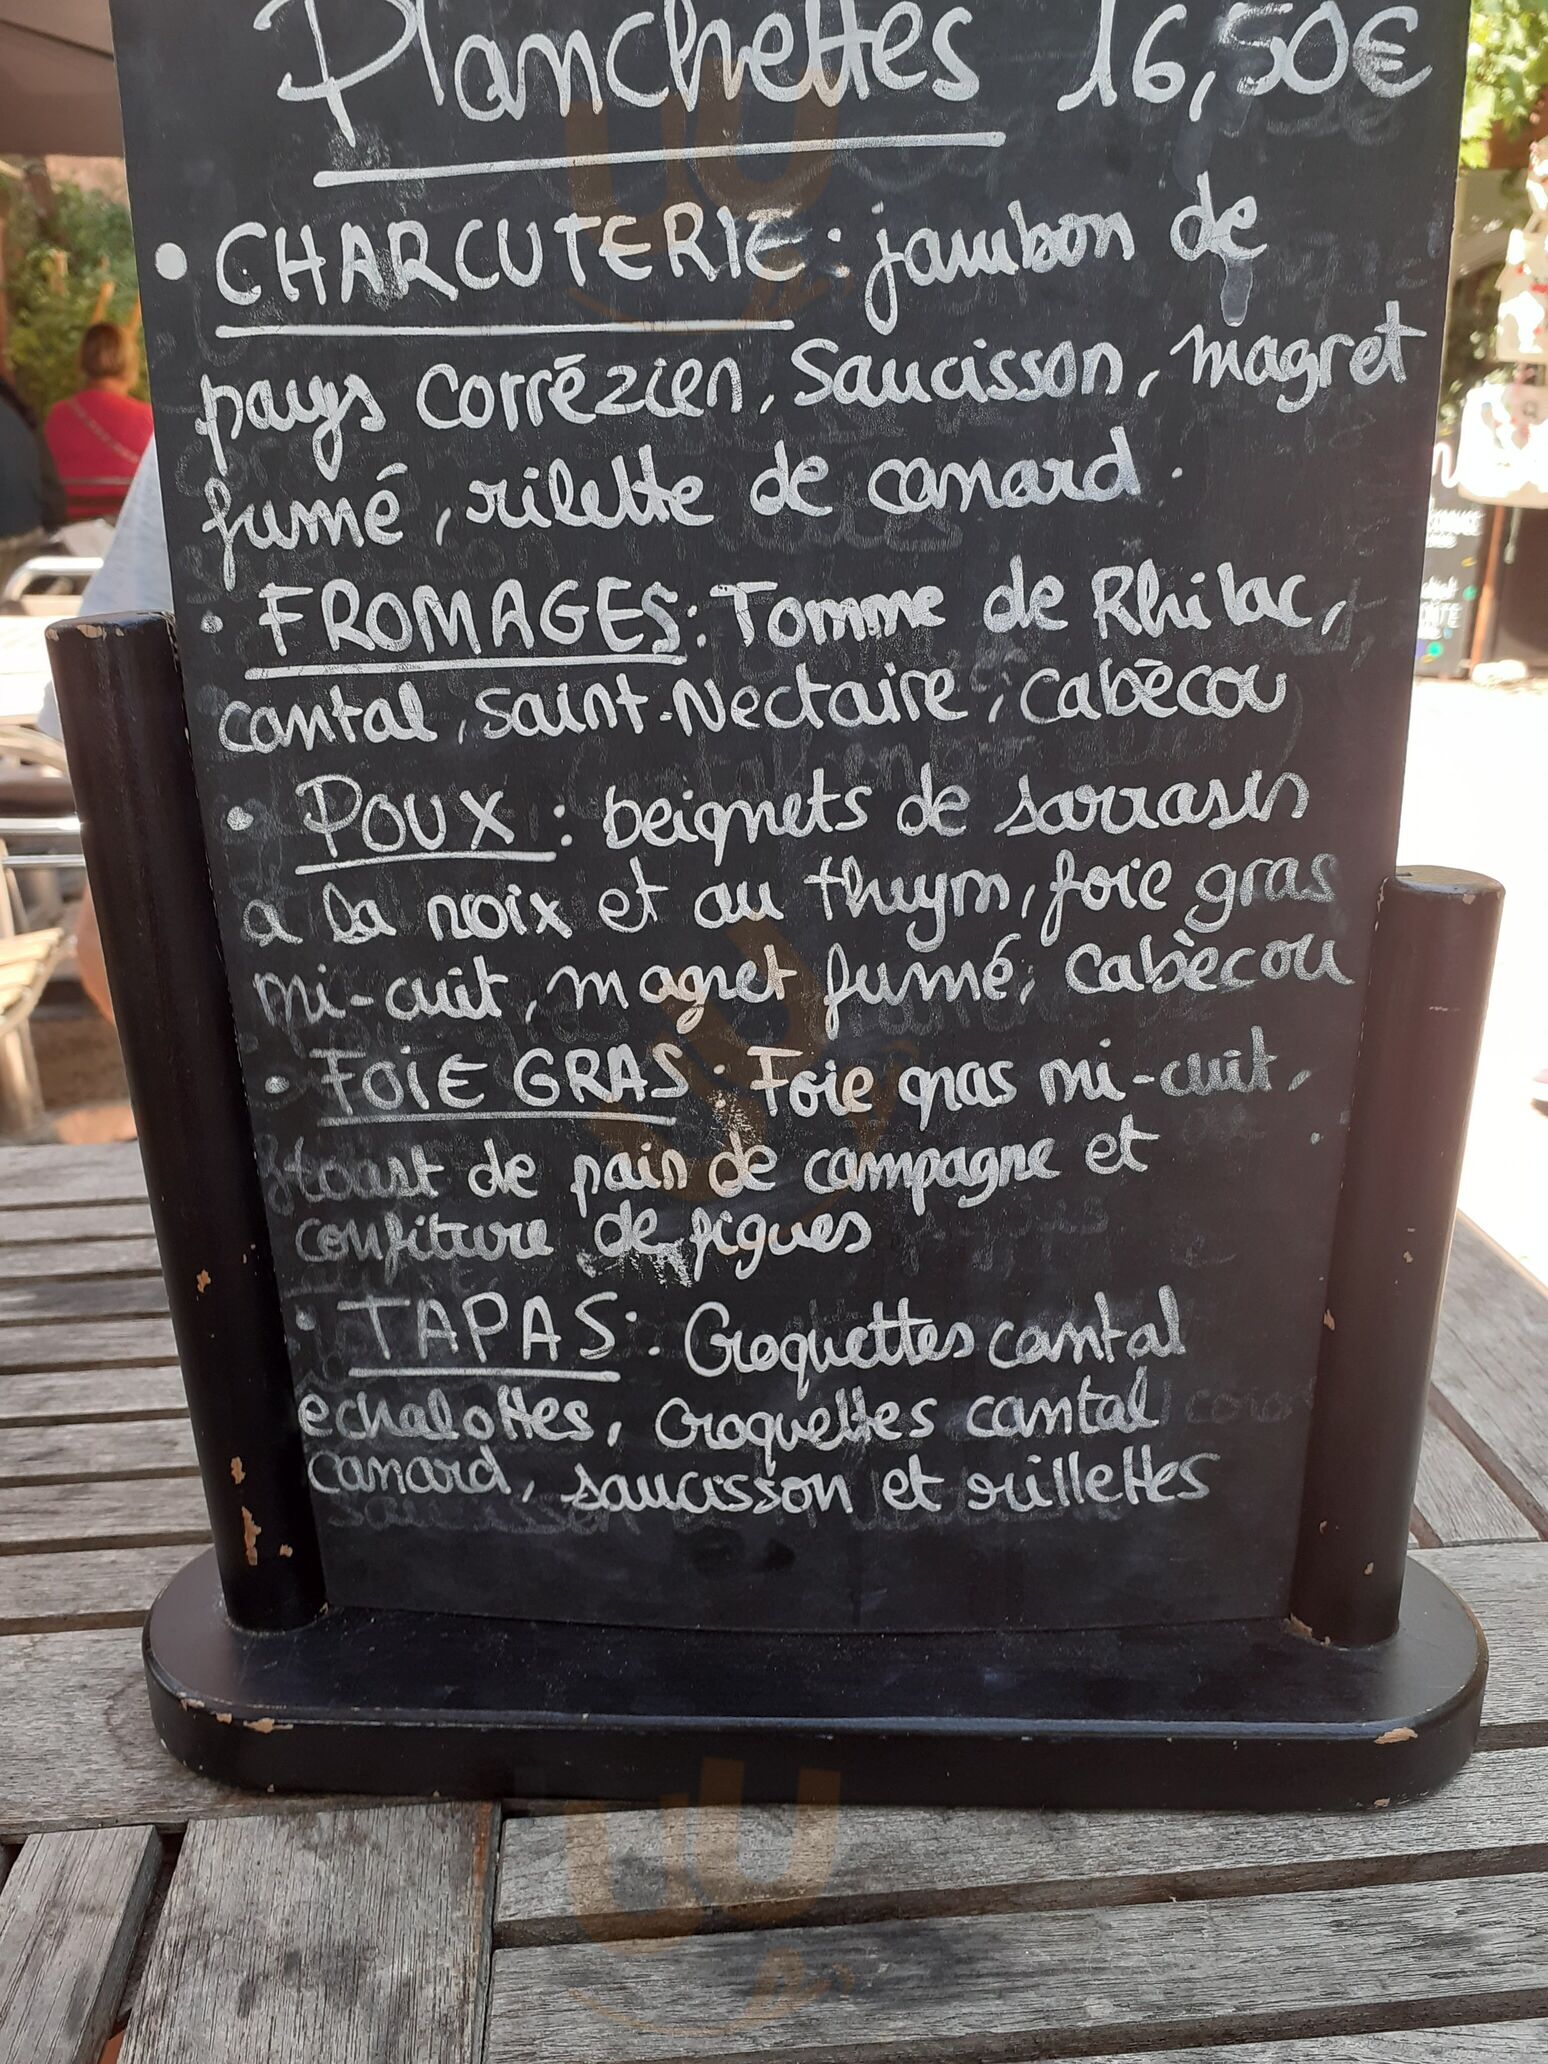 Planchettes 16,50€
• CHARCUTERIE : jambon de
pays Corrézien, Saucisson, magret
fumé, rilette de canard.
• FROMAGES : Tomme de Rhilac,
cantal, saint-Nectaire, Cabécou
• POUX : beignets de sarrasin
a la noix et au thym, foie gras
mi-cuit, magret fumé, Cabècou
• FOIE GRAS : Foie gras mi-cuit,
toast de pain de campagne et
confiture de figues
• TAPAS : Croquettes cantal
echalottes, croquettes cantal
canard, saucisson et rillettes